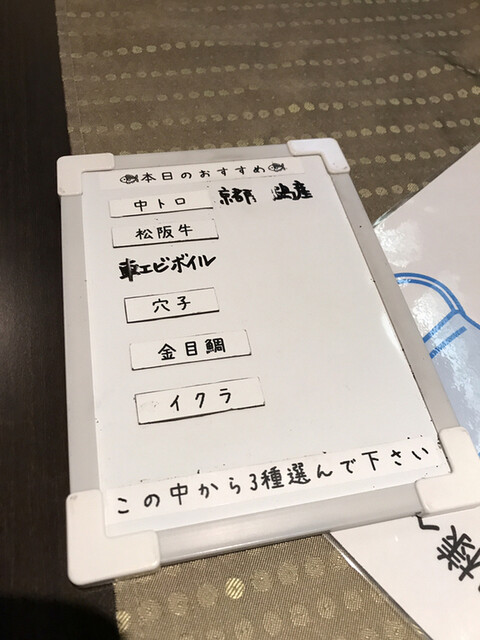 本日のおすすめ
中トロ 京都 産
松阪牛
車エビボイル
穴子
金目鯛
イクラ
この中から3種選んで下さい
様